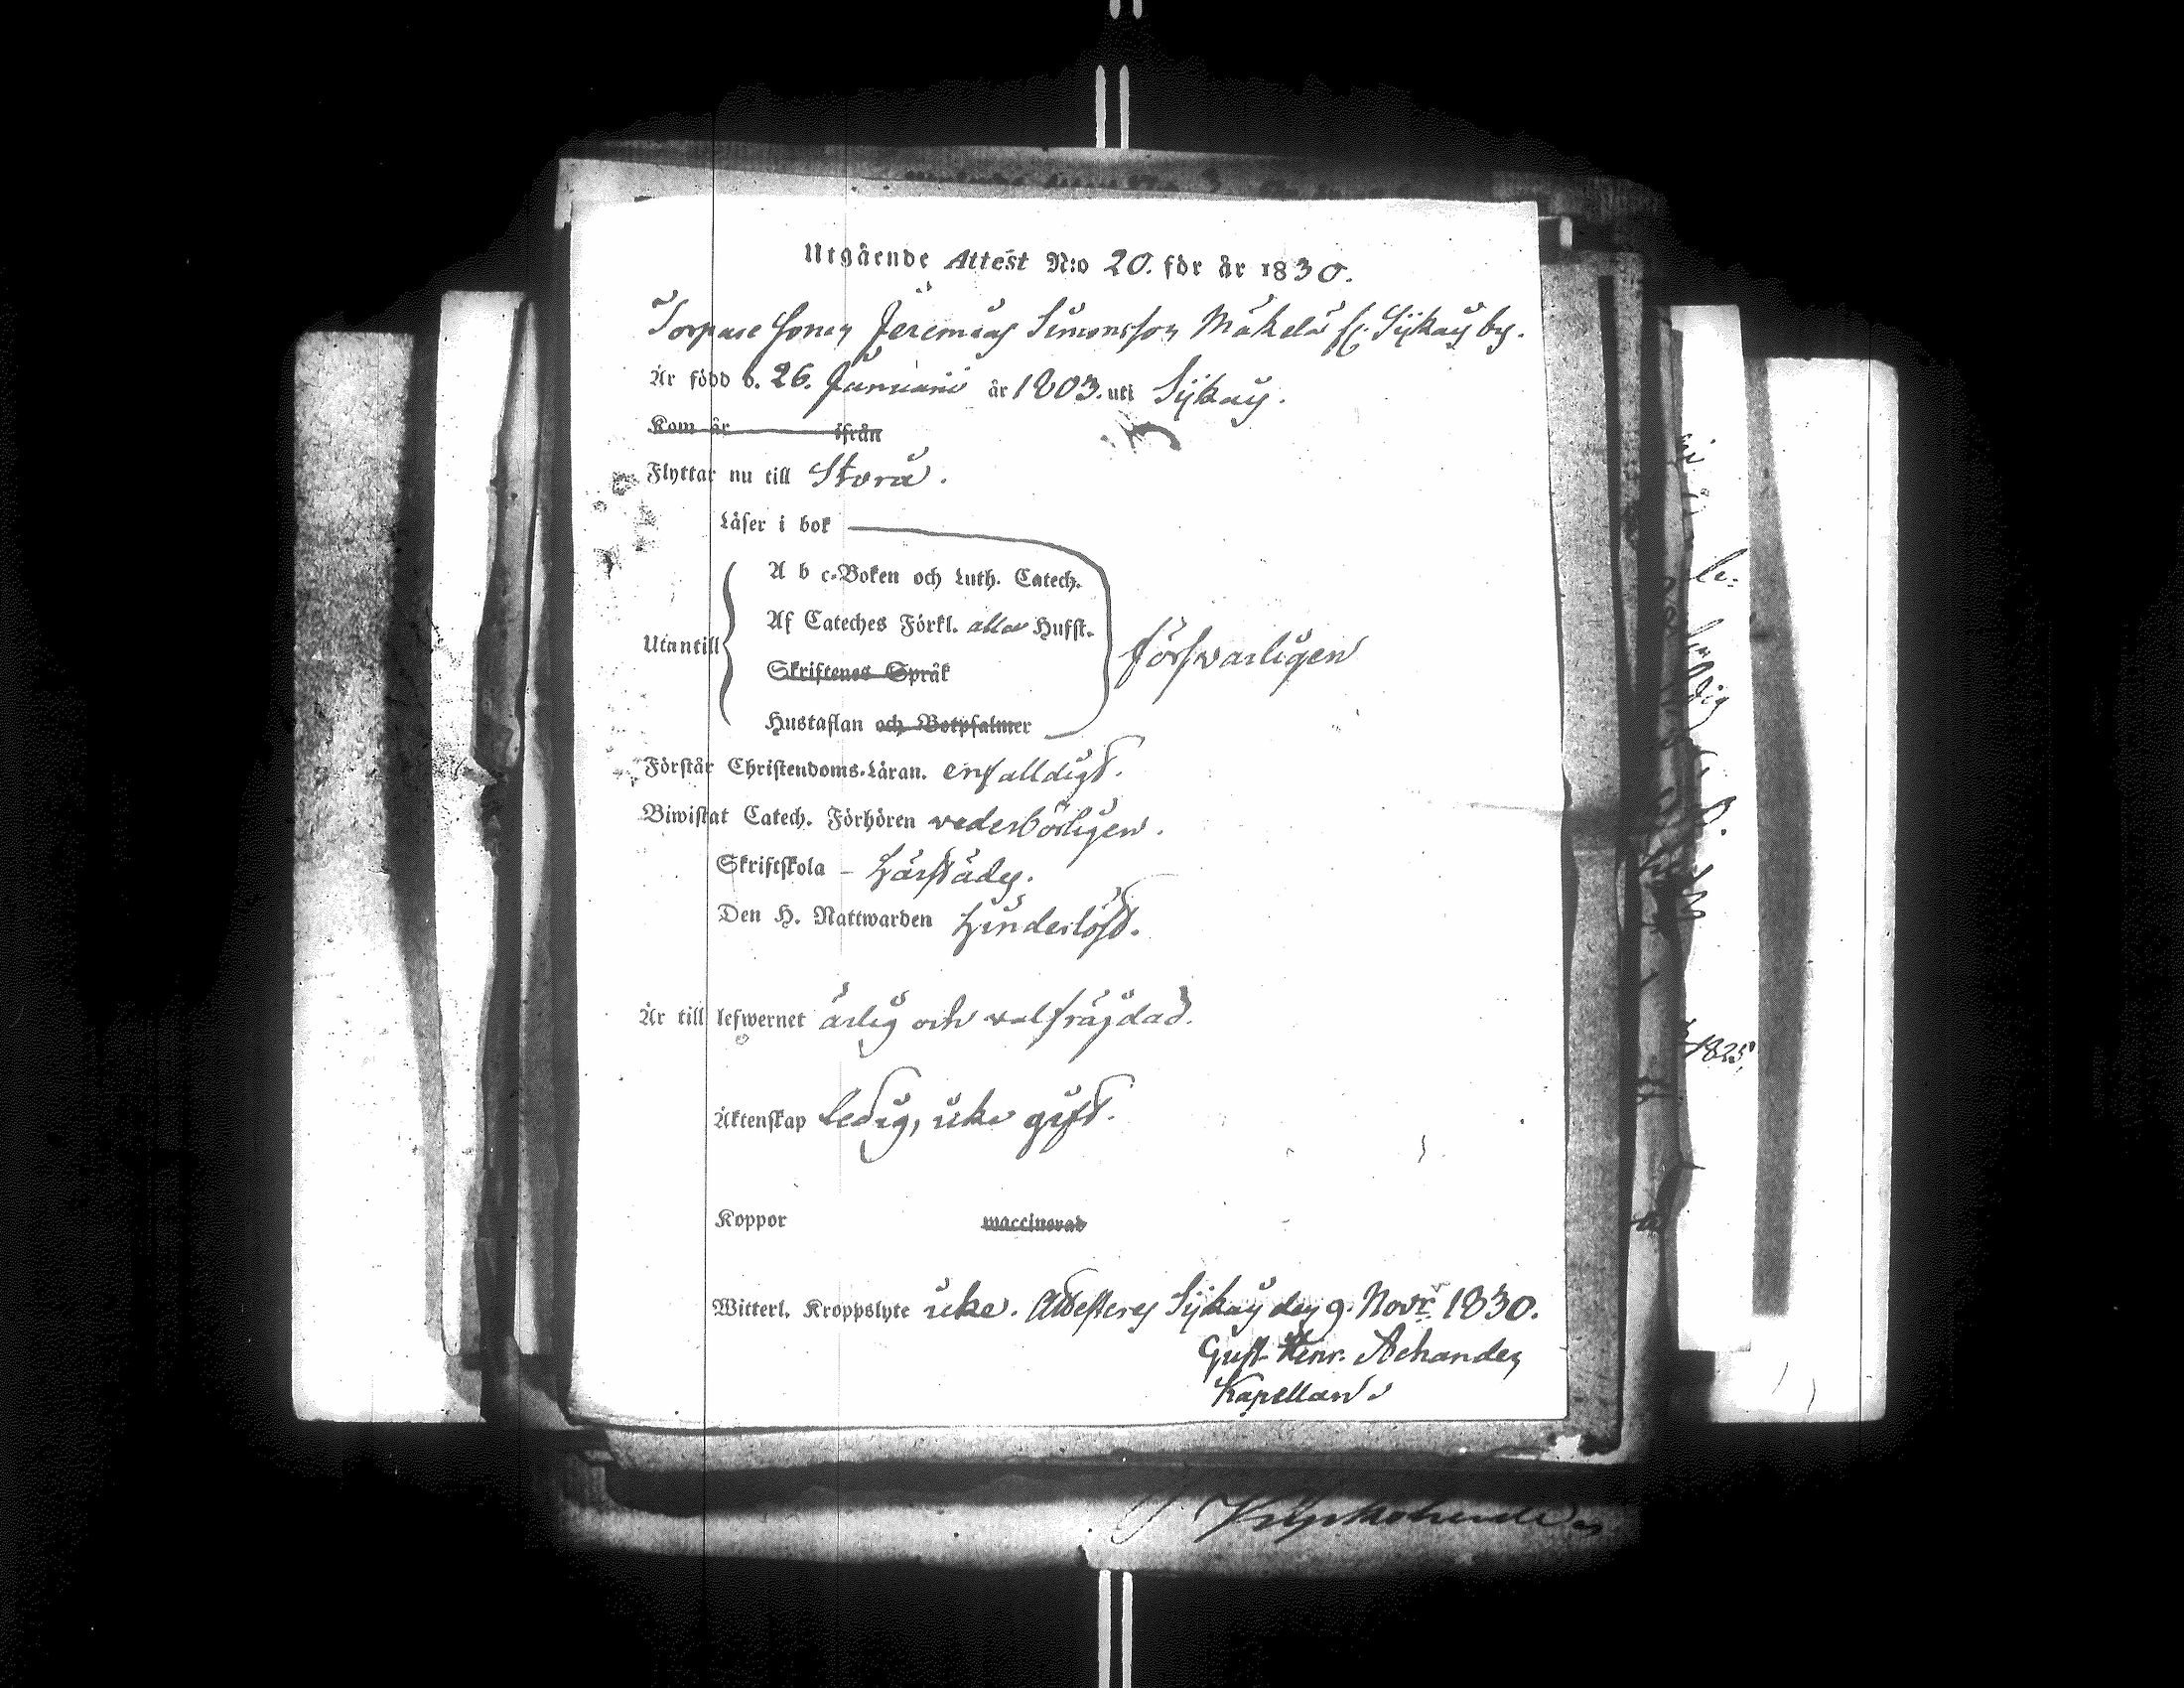 Utgående Attest N:o 20. för år 1830.
Torpare Sonen Jeremias Simonsson Mäkelä fr. Sijkais by.
Är född d. 26. Januarii år 1803. uti Sijkais.
Kom år ifrån
Flyttar nu till Storå.
Läser i bok
A b c-Boken och Luth. Catech.
Af Cateches Förkl. allar Hufst.
Utantill
försvarligen
Skriftenes Språk
Hustaflan och Botpsalmer
Förstår Christendoms-Läran. enfalldigt.
Biwistat Catech. Förhören vederbörligen.
Skriftskola – härstädes.
Den H. Nattwarden hinderlöst.
Är till lefwernet ärlig och välfrägdad.
Äktenskap ledig, icke gift.
Koppor waccinerad
Witterl. Kroppslyte icke. Attesteras Sijkais den 9. Novr. 1830.
Gust. Henr. Achander
Kapellan
le:
1825